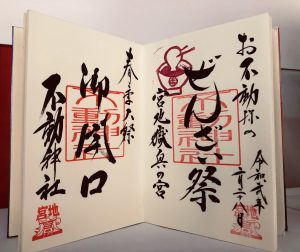 お不動様の
ぜんざい祭
宮地嶽奥の宮
令和弐年
二月二十八日
春季大祭
御開口
不動神社
宮地嶽